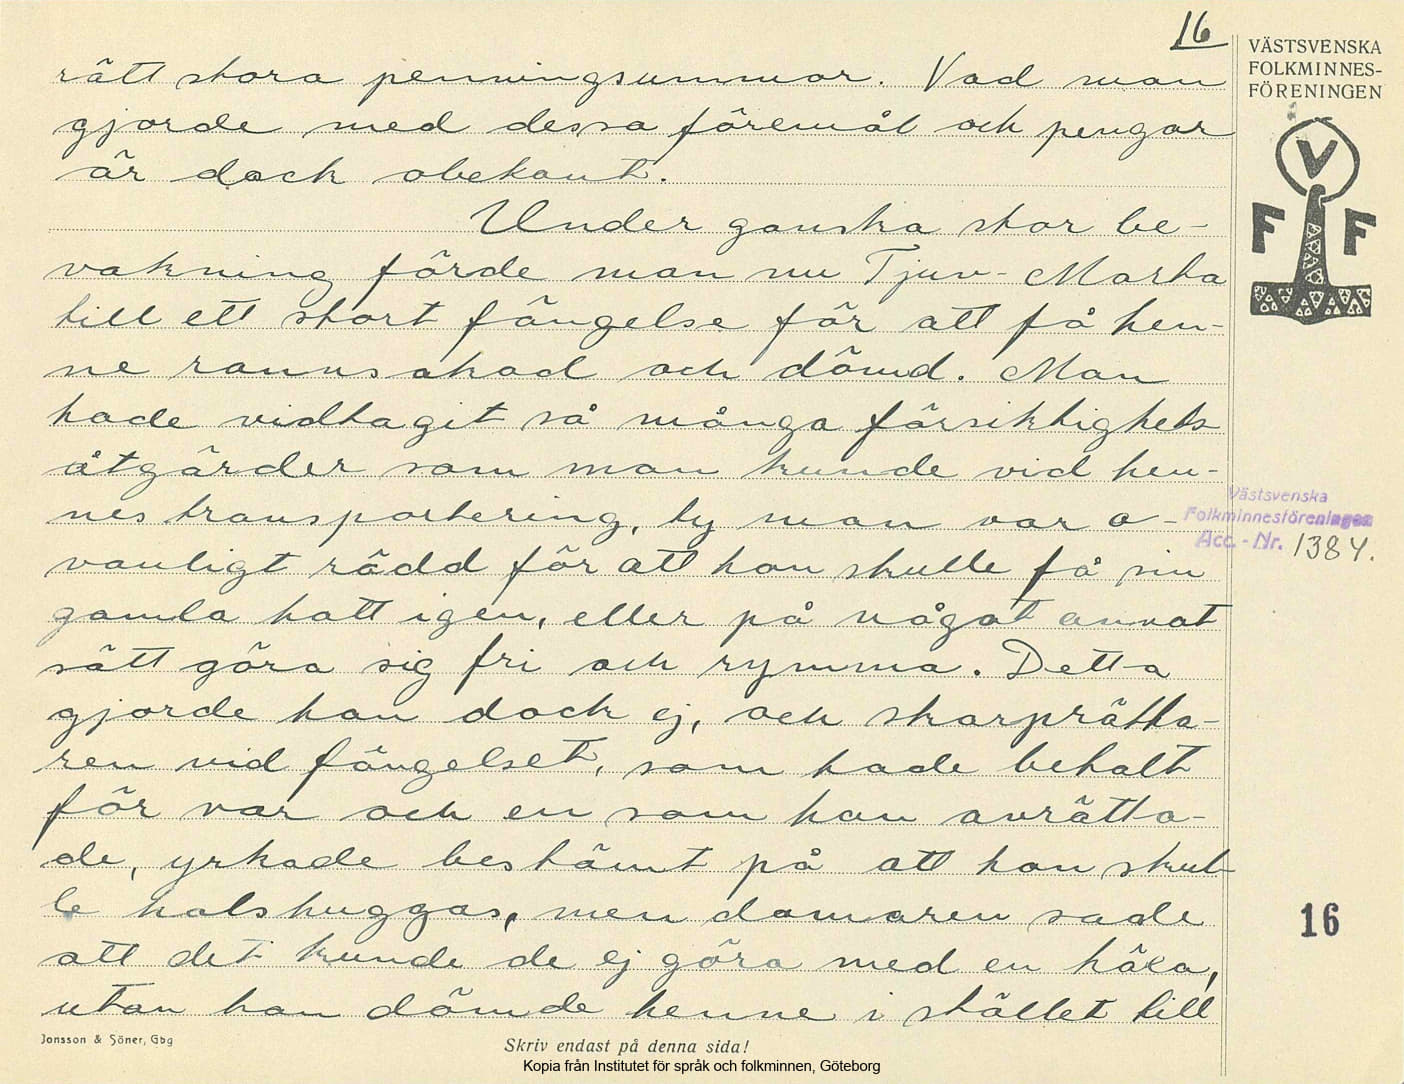 16
VÄSTSVENSKA
FOLKMINNES-
FÖRENINGEN
V
F F
rätt stora penningsummor. Vad man
gjorde med dessa föremål och pengar
är dock obekant.
Under ganska stor be-
vakning förde man nu Tjuv-Marta
till ett stort fängelse för att få hen-
ne rannsakad och dömd. Man
hade vidtagit så många försiktighets
åtgärder som man kunde vid hen-
nes transportering, ty man var o-
vanligt rädd för att hon skulle få sin
gamla hatt igen, eller på något annat
sätt göra sig fri och rymma. Detta
gjorde hon dock ej, och skarprätta-
ren vid fängelset, som hade betalt
för var och en som han avrätta-
de, yrkade bestämt på att hon skul-
le halshuggas, men domaren sade
att det kunde de ej göra med en häxa,
utan han dömde henne i stället till
Västsvenska
Folkminnesföreningen
Acc.-Nr. 1384.
16
Jonsson & Söner, Gbg
Skriv endast på denna sida!
Kopia från Institutet för språk och folkminnen, Göteborg